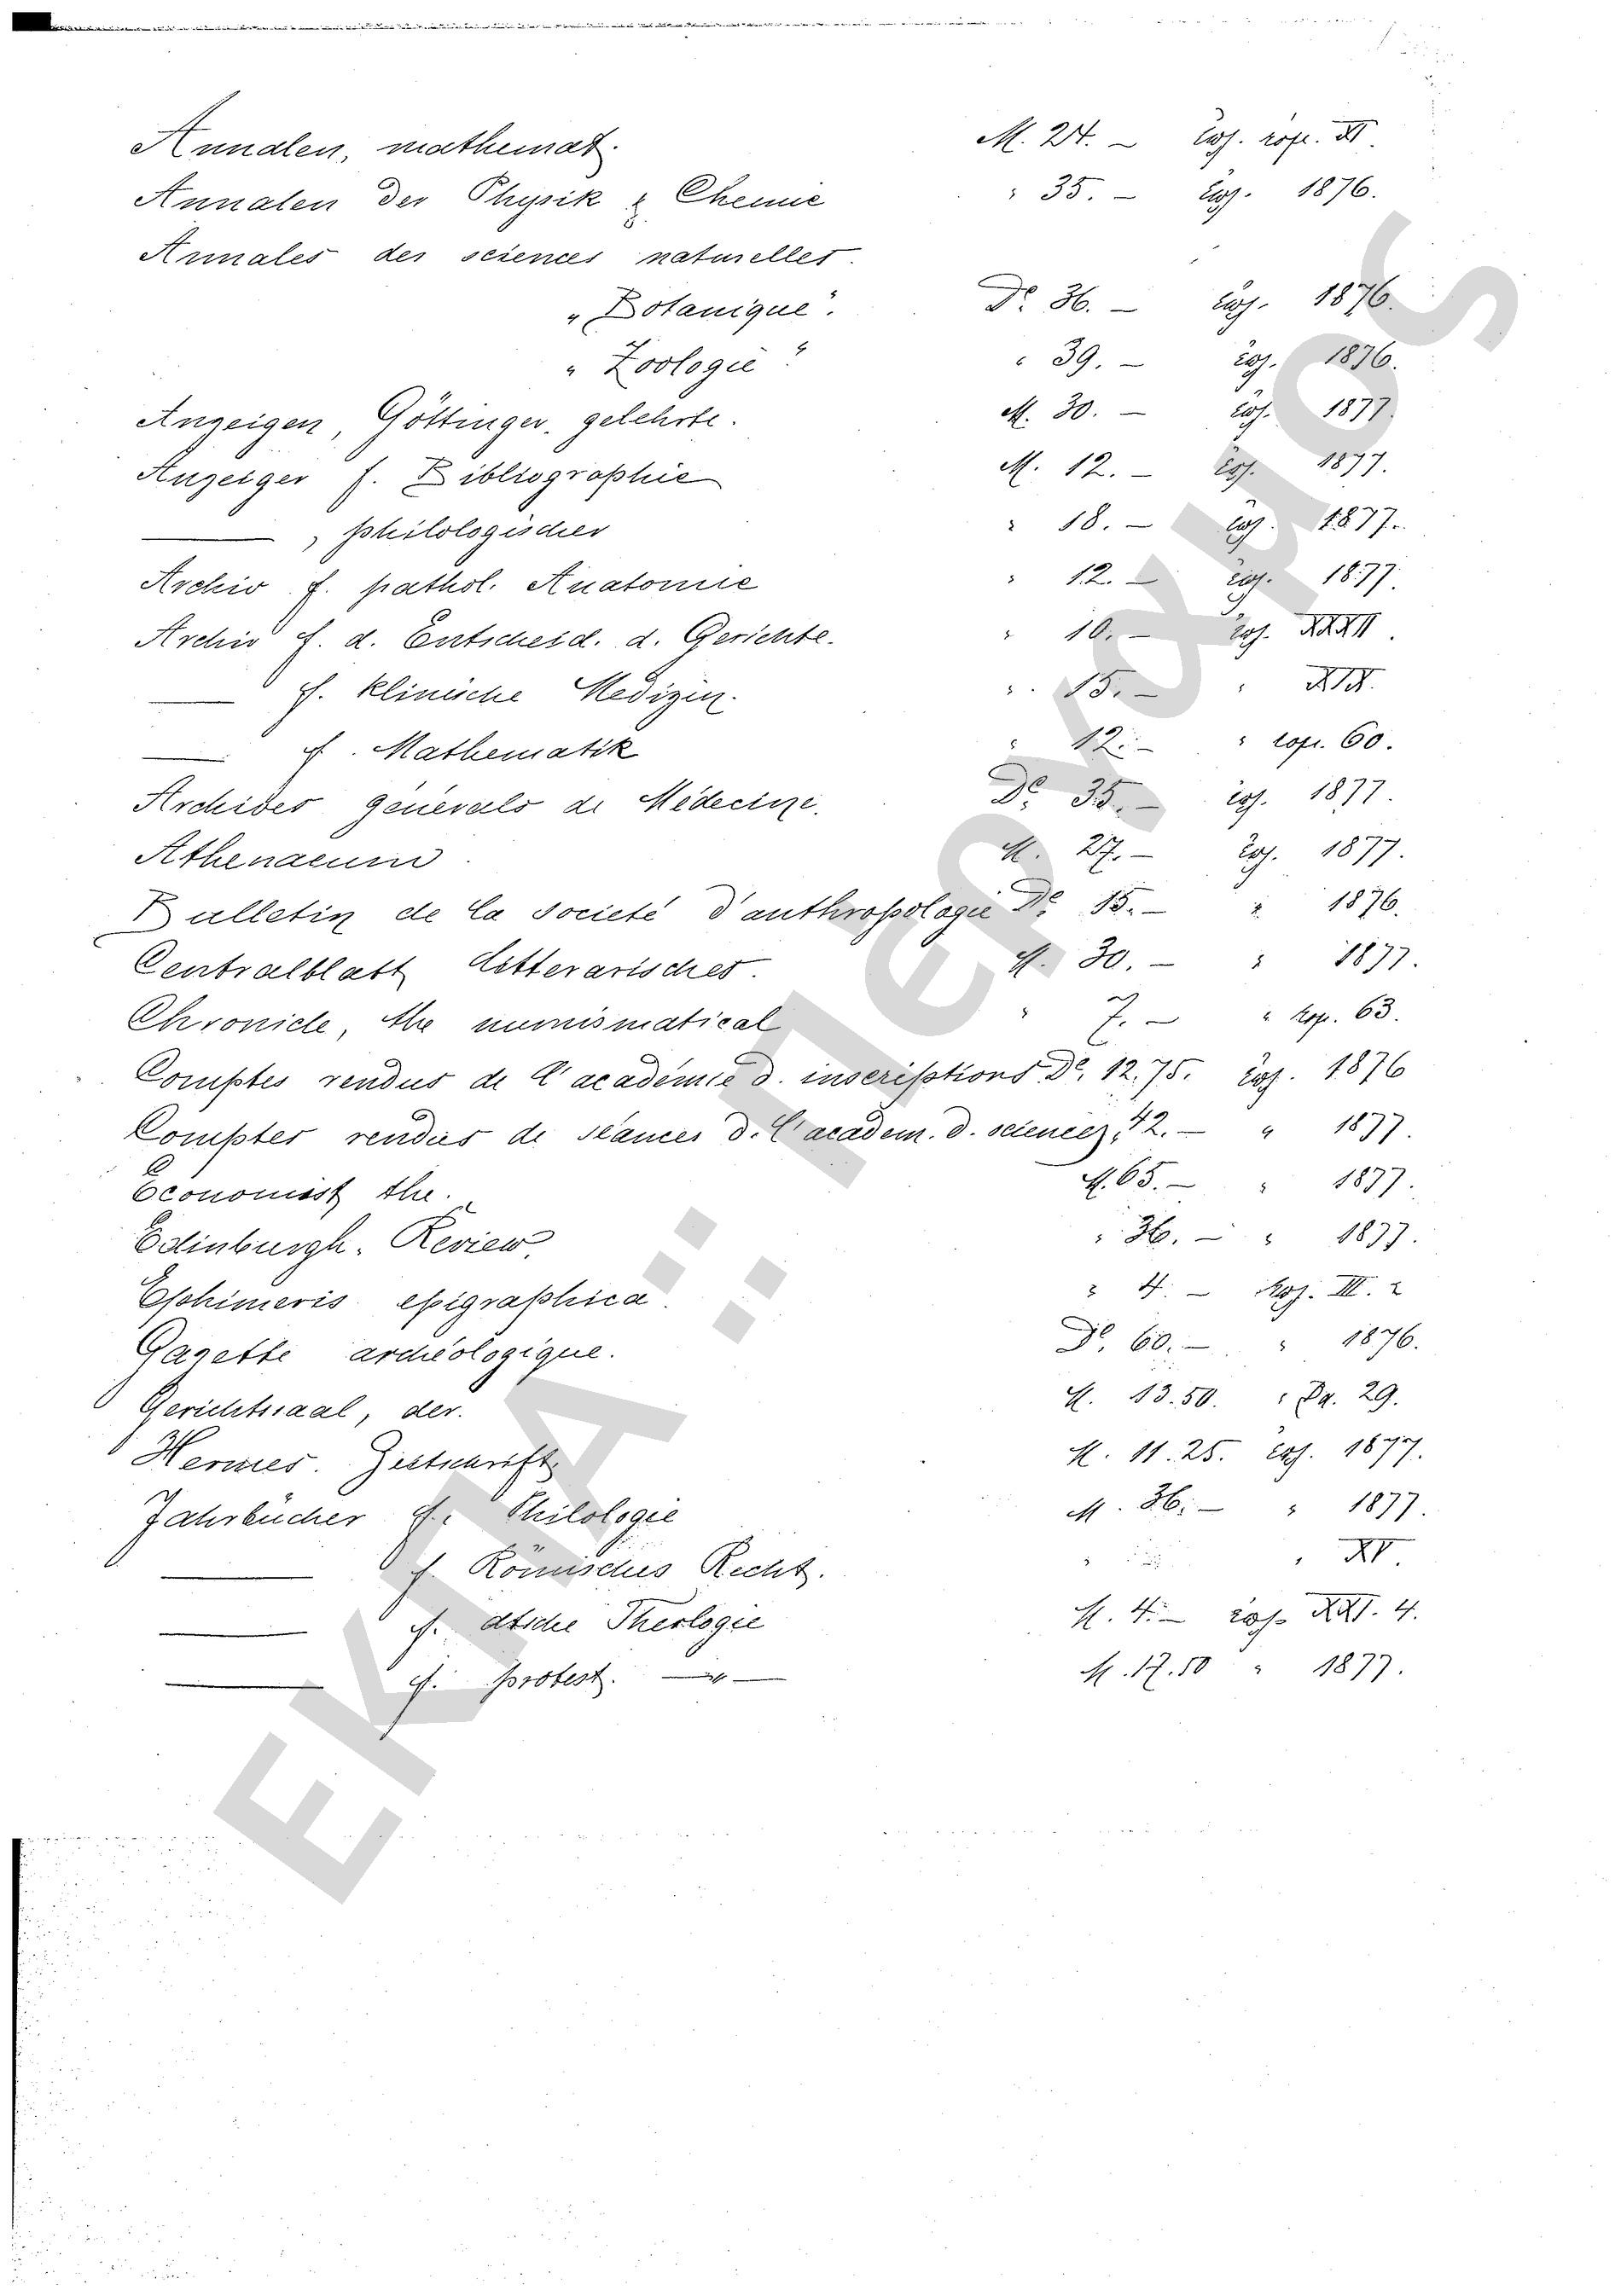 Annalen, mathemat. M. 24. — ἕως τόμ. XI.
Annalen der Physik & Chemie " 35. — ἕως. 1876.
Annales des sciences naturelles.
"Botanique". Dc. 36. — ἕως. 1876.
"Zoologie" " 39. — ἕως. 1876.
Anzeigen, Göttinger, gelehrte. M. 30. — ἕως. 1877.
Anzeiger f. Bibliographie M. 12. — ἕως. 1877.
——— , philologischer " 18. — ἕως. 1877.
Archiv f. pathol. Anatomie " 12. — ἕως. 1877.
Archiv f. d. Entscheid. d. Gerichte. " 10. — ἕως. XXXII.
——— f. klinische Medizin. " 15. — " XIX.
——— f. Mathematik " 12. — " τόμ. 60.
Archives génerals de Médecine. Dc. 35. — ἕως. 1877.
Athenaeum. M. 27. — ἕως. 1877.
Bulletin de la societé d'anthropologie Dc. 15. — " 1876.
Centralblatt litterarisches. M. 30. — " 1877.
Chronicle, the numismatical " 7. — " 63.
Comptes rendus de l'académie d. inscriptions Dc. 12.75. ἕως. 1876
Comptes rendus de séances d. l'academ. d. sciences, 42. — " 1877.
Economist the. M. 65. — " 1877.
Edinburgh. Review. " 36. — " 1877.
Ephimeris epigraphica. " 4. — III. 2
Gazette archéologique. Dc. 60. — " 1876.
Gerichtssaal, der. M. 13.50. " 29.
Hermes. Zeitschrift M. 11.25. ἕως. 1877.
Jahrbücher f. Philologie M. 36. — " 1877.
——— f. Römisches Recht. " " XV.
——— f. dtsche Theologie M. 4. — ἕως XXI. 4.
——— f. protest. — " — M. 17.50 " 1877.
ΕΚΠΑ :: Πέργαμος